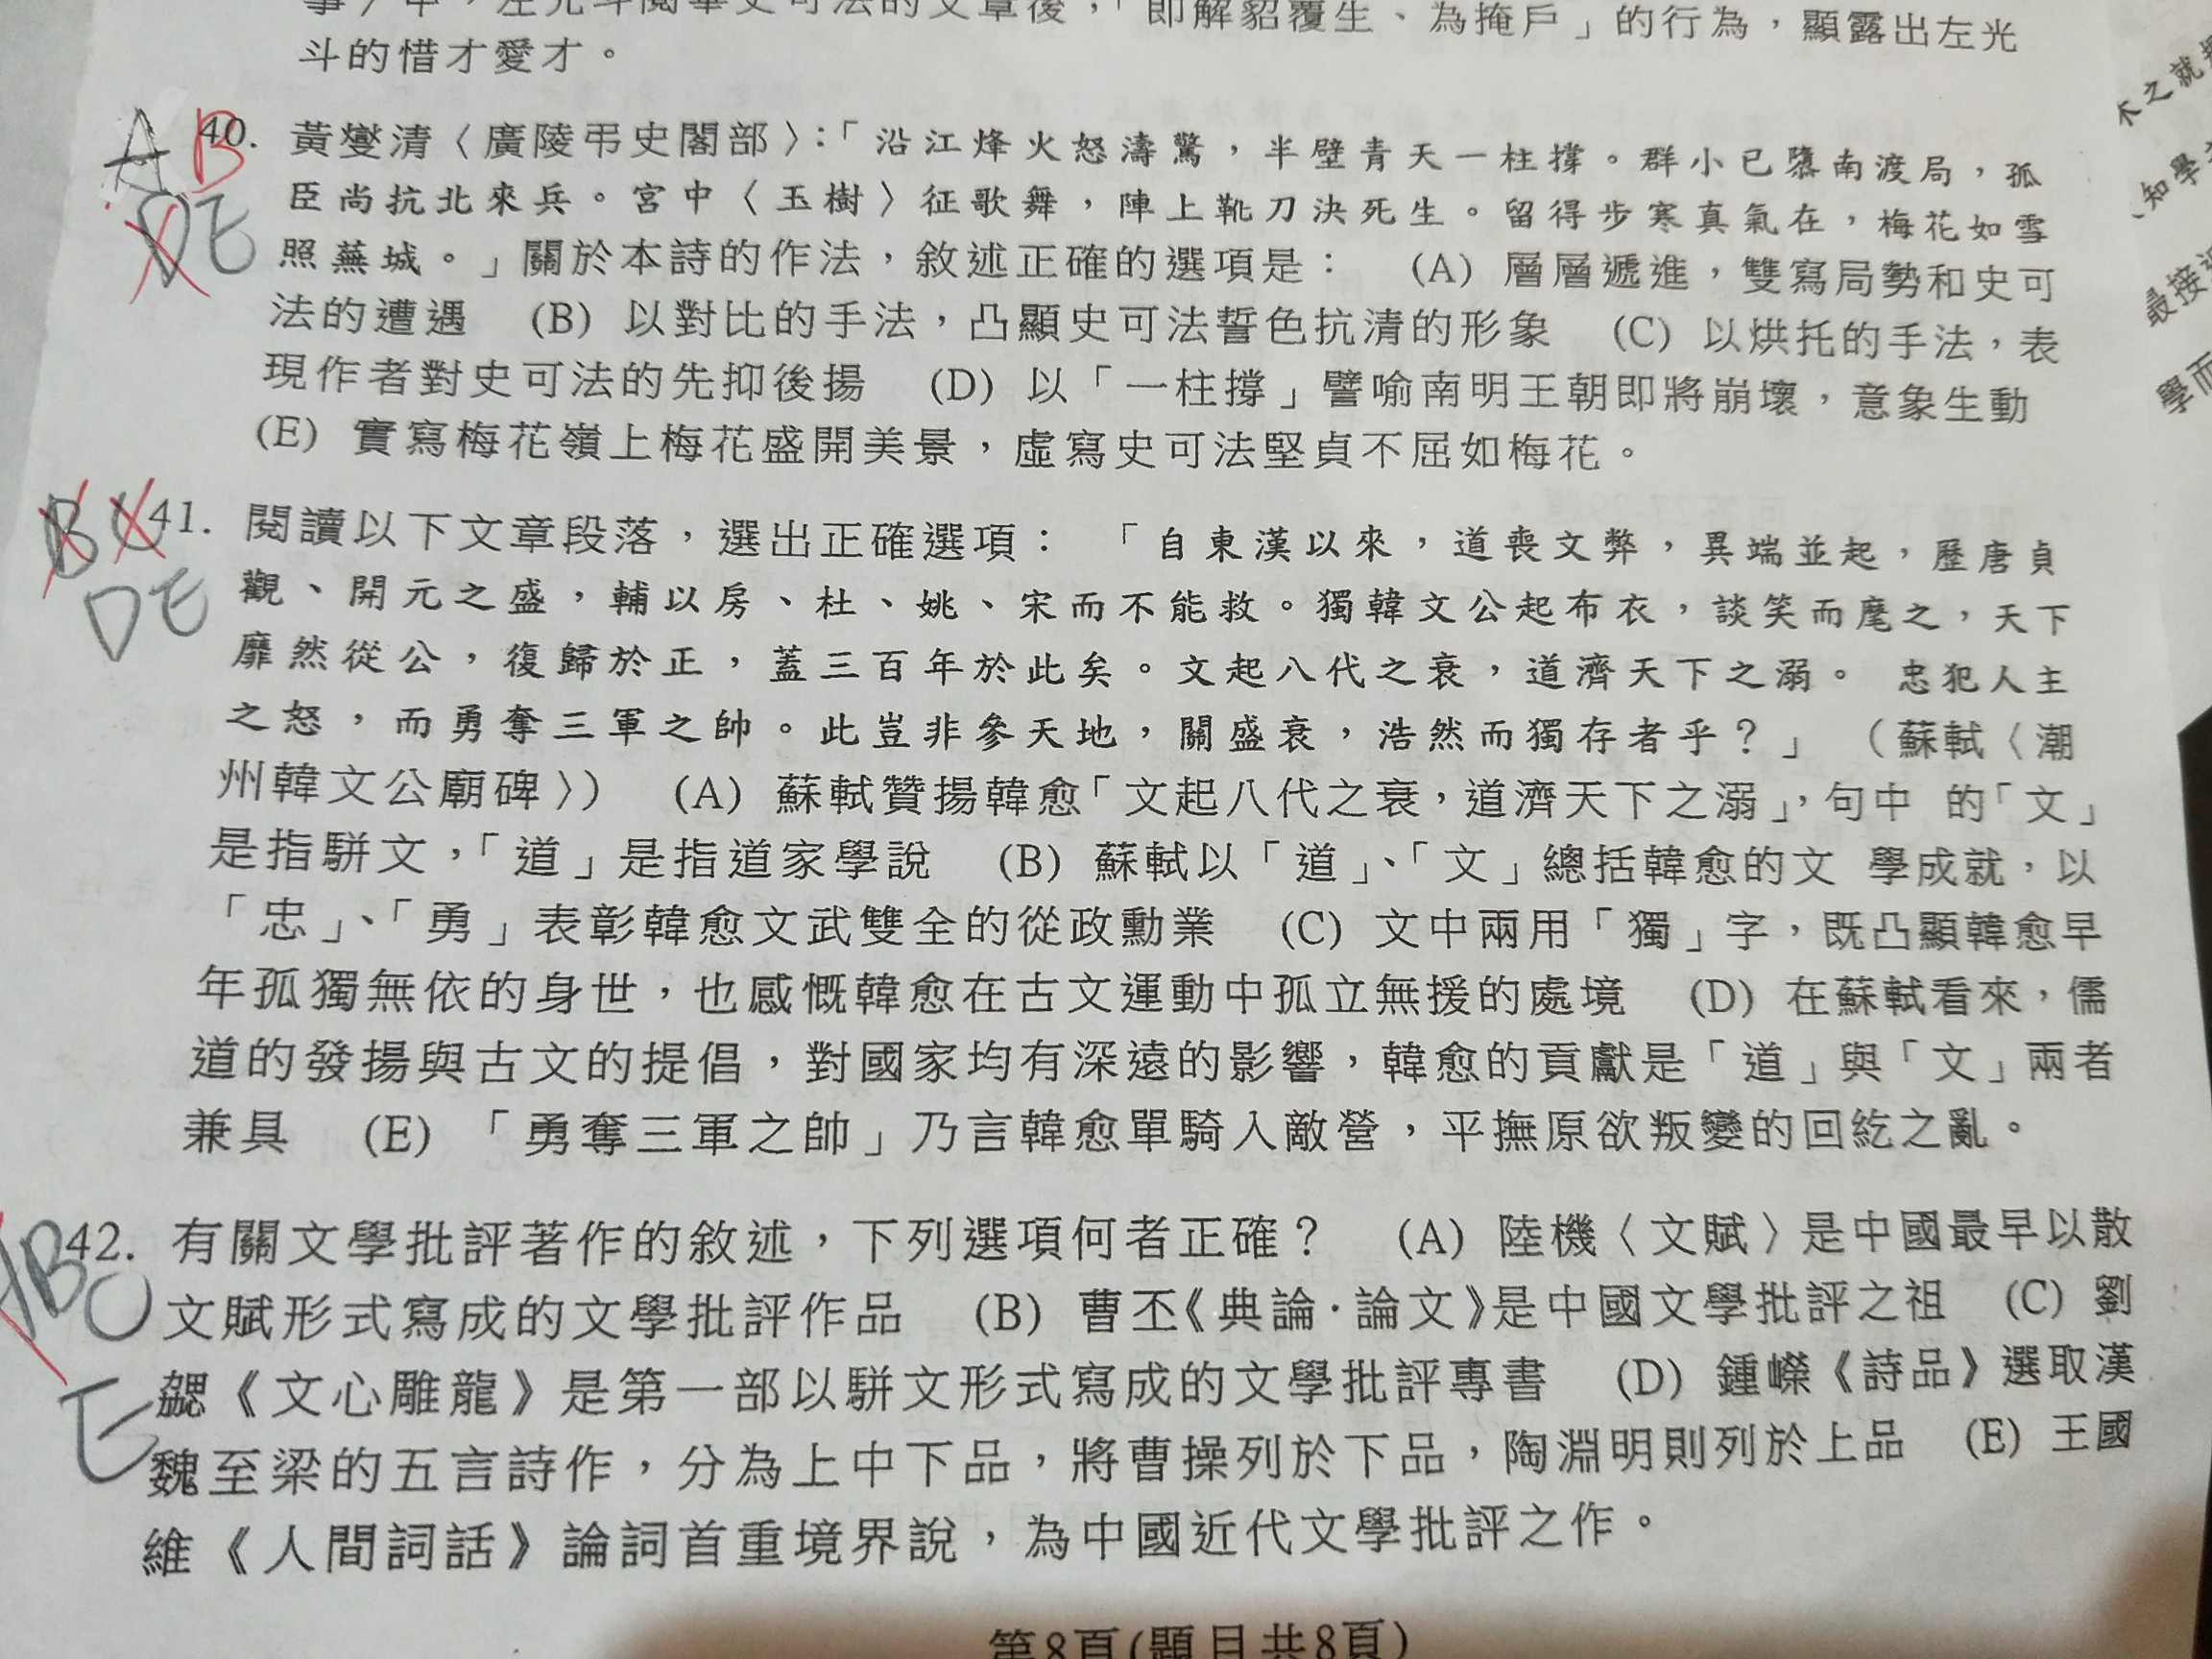 事〉中,左光斗閱畢史可法的文章後,「即解貂覆生、為掩戶」的行為,顯露出左光
斗的惜才愛才。
40. 黃燮清〈廣陵弔史閣部〉:「沿江烽火怒濤驚,半壁青天一柱撐。群小已隳南渡局,孤
臣尚抗北來兵。宮中〈玉樹〉征歌舞,陣上靴刀決死生。留得步寒真氣在,梅花如雪
照蕪城。」關於本詩的作法,敘述正確的選項是: (A) 層層遞進,雙寫局勢和史可
法的遭遇 (B) 以對比的手法,凸顯史可法誓色抗清的形象 (C) 以烘托的手法,表
現作者對史可法的先抑後揚 (D) 以「一柱撐」譬喻南明王朝即將崩壞,意象生動
(E) 實寫梅花嶺上梅花盛開美景,虛寫史可法堅貞不屈如梅花。
A B
DE
41. 閱讀以下文章段落,選出正確選項: 「自東漢以來,道喪文弊,異端並起,歷唐貞
觀、開元之盛,輔以房、杜、姚、宋而不能救。獨韓文公起布衣,談笑而麾之,天下
靡然從公,復歸於正,蓋三百年於此矣。文起八代之衰,道濟天下之溺。 忠犯人主
之怒,而勇奪三軍之帥。此豈非參天地,關盛衰,浩然而獨存者乎?」 (蘇軾〈潮
州韓文公廟碑〉) (A) 蘇軾贊揚韓愈「文起八代之衰,道濟天下之溺」,句中 的「文」
是指駢文,「道」是指道家學說 (B) 蘇軾以「道」、「文」總括韓愈的文 學成就,以
「忠」、「勇」表彰韓愈文武雙全的從政勳業 (C) 文中兩用「獨」字,既凸顯韓愈早
年孤獨無依的身世,也感慨韓愈在古文運動中孤立無援的處境 (D) 在蘇軾看來,儒
道的發揚與古文的提倡,對國家均有深遠的影響,韓愈的貢獻是「道」與「文」兩者
兼具 (E) 「勇奪三軍之帥」乃言韓愈單騎入敵營,平撫原欲叛變的回紇之亂。
B C
DE
42. 有關文學批評著作的敘述,下列選項何者正確? (A) 陸機〈文賦〉是中國最早以散
文賦形式寫成的文學批評作品 (B) 曹丕《典論·論文》是中國文學批評之祖 (C) 劉
勰《文心雕龍》是第一部以駢文形式寫成的文學批評專書 (D) 鍾嶸《詩品》選取漢
魏至梁的五言詩作,分為上中下品,將曹操列於下品,陶淵明則列於上品 (E) 王國
維《人間詞話》論詞首重境界說,為中國近代文學批評之作。
ABC
E
第8頁(題目共8頁)
木之就
知學
最接近
學而